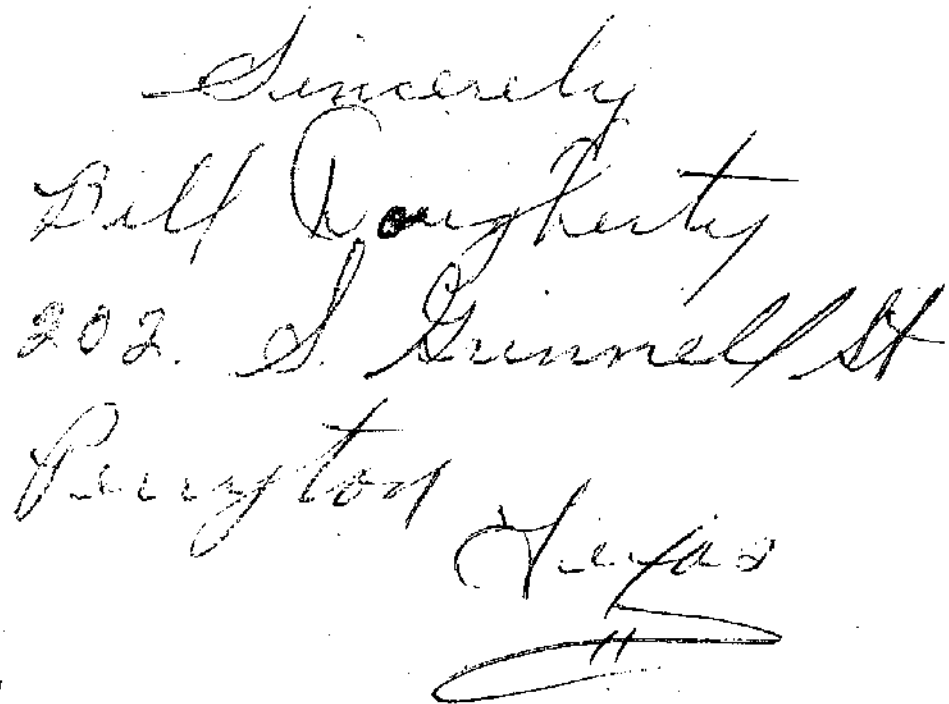 Sincerely
Bill Daugherty
202. S. Grinnell St
Perryton
Texas